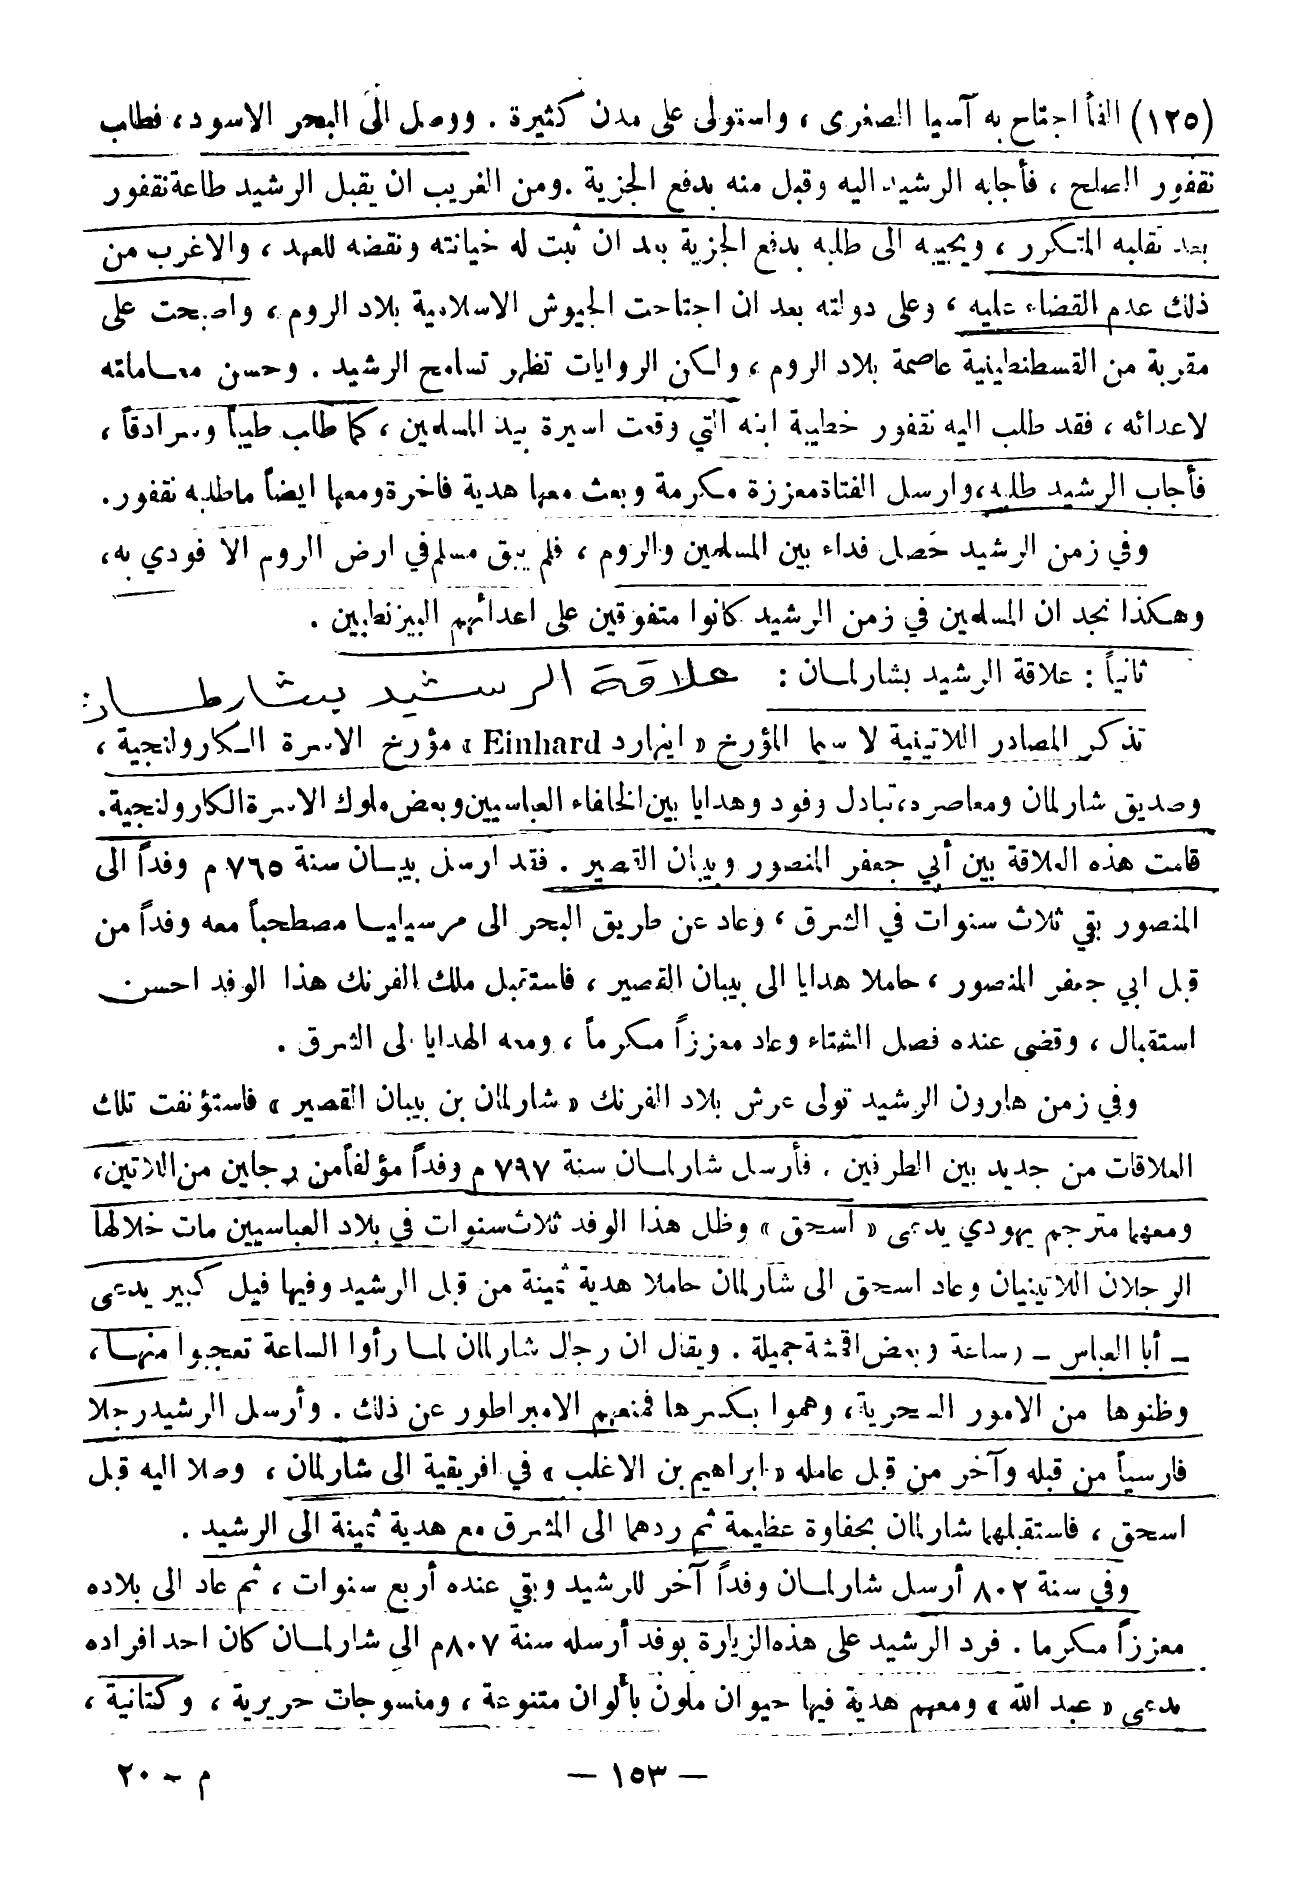 (١٢٥) الفاً اجتاح به آسيا الصغرى ، واستولى على مدن كثيرة . ووصل الى البحر الاسود ، فطلب
نقفور الصلح ، فأجابه الرشيد اليه وقبل منه بدفع الجزية . ومن الغريب ان يقبل الرشيد طاعة نقفور
بعد تقلبه المتكرر ، ويجيبه الى طلبه بدفع الجزية بعد ان ثبت له خيانته ونقضه للعهد ، والاغرب من
ذلك عدم القضاء عليه ، وعلى دولته بعد ان اجتاحت الجيوش الاسلامية بلاد الروم ، واصبحت على
مقربة من القسطنطينية عاصمة بلاد الروم ، ولكن الروايات تظهر تسامح الرشيد . وحسن معاملته
لاعدائه ، فقد طلب اليه نقفور خطيبة ابنه التي وقعت اسيرة بيد المسلمين ، كما طلب طيباً وسرادقاً ،
فأجاب الرشيد طلبه ، وارسل الفتاة معززة مكرمة وبعث معها هدية فاخرة ومعها ايضاً ماطلبه نقفور .
وفي زمن الرشيد حصل فداء بين المسلمين والروم ، فلم يبق مسلم في ارض الروم الا فودي به ،
وهكذا نجد ان المسلمين في زمن الرشيد كانوا متفوقين على اعدائهم البيزنطيين .
ثانياً : علاقة الرشيد بشارلمان : علاقة الرشيد بشارلمان
تذكر المصادر اللاتينية لا سيما المؤرخ « اينهارد Einhard » مؤرخ الاسرة الكارولنجية ،
وصديق شارلمان ومعاصره ، تبادل وفود وهدايا بين الخلفاء العباسيين وبعض ملوك الاسرة الكارولنجية .
قامت هذه العلاقة بين أبي جعفر المنصور وبيبان القصير . فقد ارسل بيبان سنة ٧٦٥ م وفداً الى
المنصور بقي ثلاث سنوات في الشرق ، وعاد عن طريق البحر الى مرسيليا مصطحباً معه وفداً من
قبل ابي جعفر المنصور ، حاملا هدايا الى بيبان القصير ، فاستقبل ملك الفرنك هذا الوفد احسن
استقبال ، وقضى عنده فصل الشتاء وعاد معززاً مكرماً ، ومعه الهدايا الى الشرق .
وفي زمن هارون الرشيد تولى عرش بلاد الفرنك « شارلمان بن بيبان القصير » فاستؤنفت تلك
العلاقات من جديد بين الطرفين . فأرسل شارلمان سنة ٧٩٧ م وفداً مؤلفاً من رجلين من اللاتين ،
ومعهما مترجم يهودي يدعى « اسحق » وظل هذا الوفد ثلاث سنوات في بلاد العباسيين مات خلالها
الرجلان اللاتينيان وعاد اسحق الى شارلمان حاملا هدية ثمينة من قبل الرشيد وفيها فيل كبير يدعى
ـ أبا العباس ـ وساعة وبعض اقمشة جميلة . ويقال ان رجال شارلمان لما رأوا الساعة تعجبوا منها ،
وظنوها من الامور السحرية ، وهموا بكسرها فمنعهم الامبراطور عن ذلك . وأرسل الرشيد رجلا
فارسياً من قبله وآخر من قبل عامله « ابراهيم بن الاغلب » في افريقية الى شارلمان ، وصلا اليه قبل
اسحق ، فاستقبلهما شارلمان بحفاوة عظيمة ثم ردهما الى المشرق مع هدية ثمينة الى الرشيد .
وفي سنة ٨٠٢ أرسل شارلمان وفداً آخر للرشيد وبقي عنده أربع سنوات ، ثم عاد الى بلاده
معززاً مكرما . فرد الرشيد على هذه الزيارة بوفد أرسله سنة ٨٠٧م الى شارلمان كان احد افراده
يدعى « عبد الله » ومعهم هدية فيها حيوان ملون بألوان متنوعة ، ومنسوجات حريرية ، وكتانية ،
— ١٥٣ —
م - ٢٠